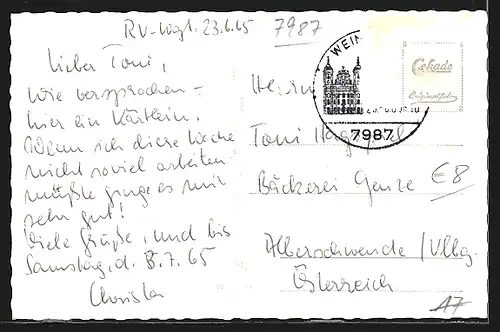 RV-Vogt. 23.6.65 7987
Lieber Toni,
wie versprochen –
hier ein Kärtlein.
Wenn ich diese Woche
nicht soviel arbeiten
müßte ginge es mir
sehr gut!
Viele Grüße, und bis
Samstag, d. 3.7.65
Christa
WEIN
7987
Cekade
Originalfoto
Herrn
Toni
Bäckerei Genze
€8
Alberschwende/Vlbg.
Österreich
A7